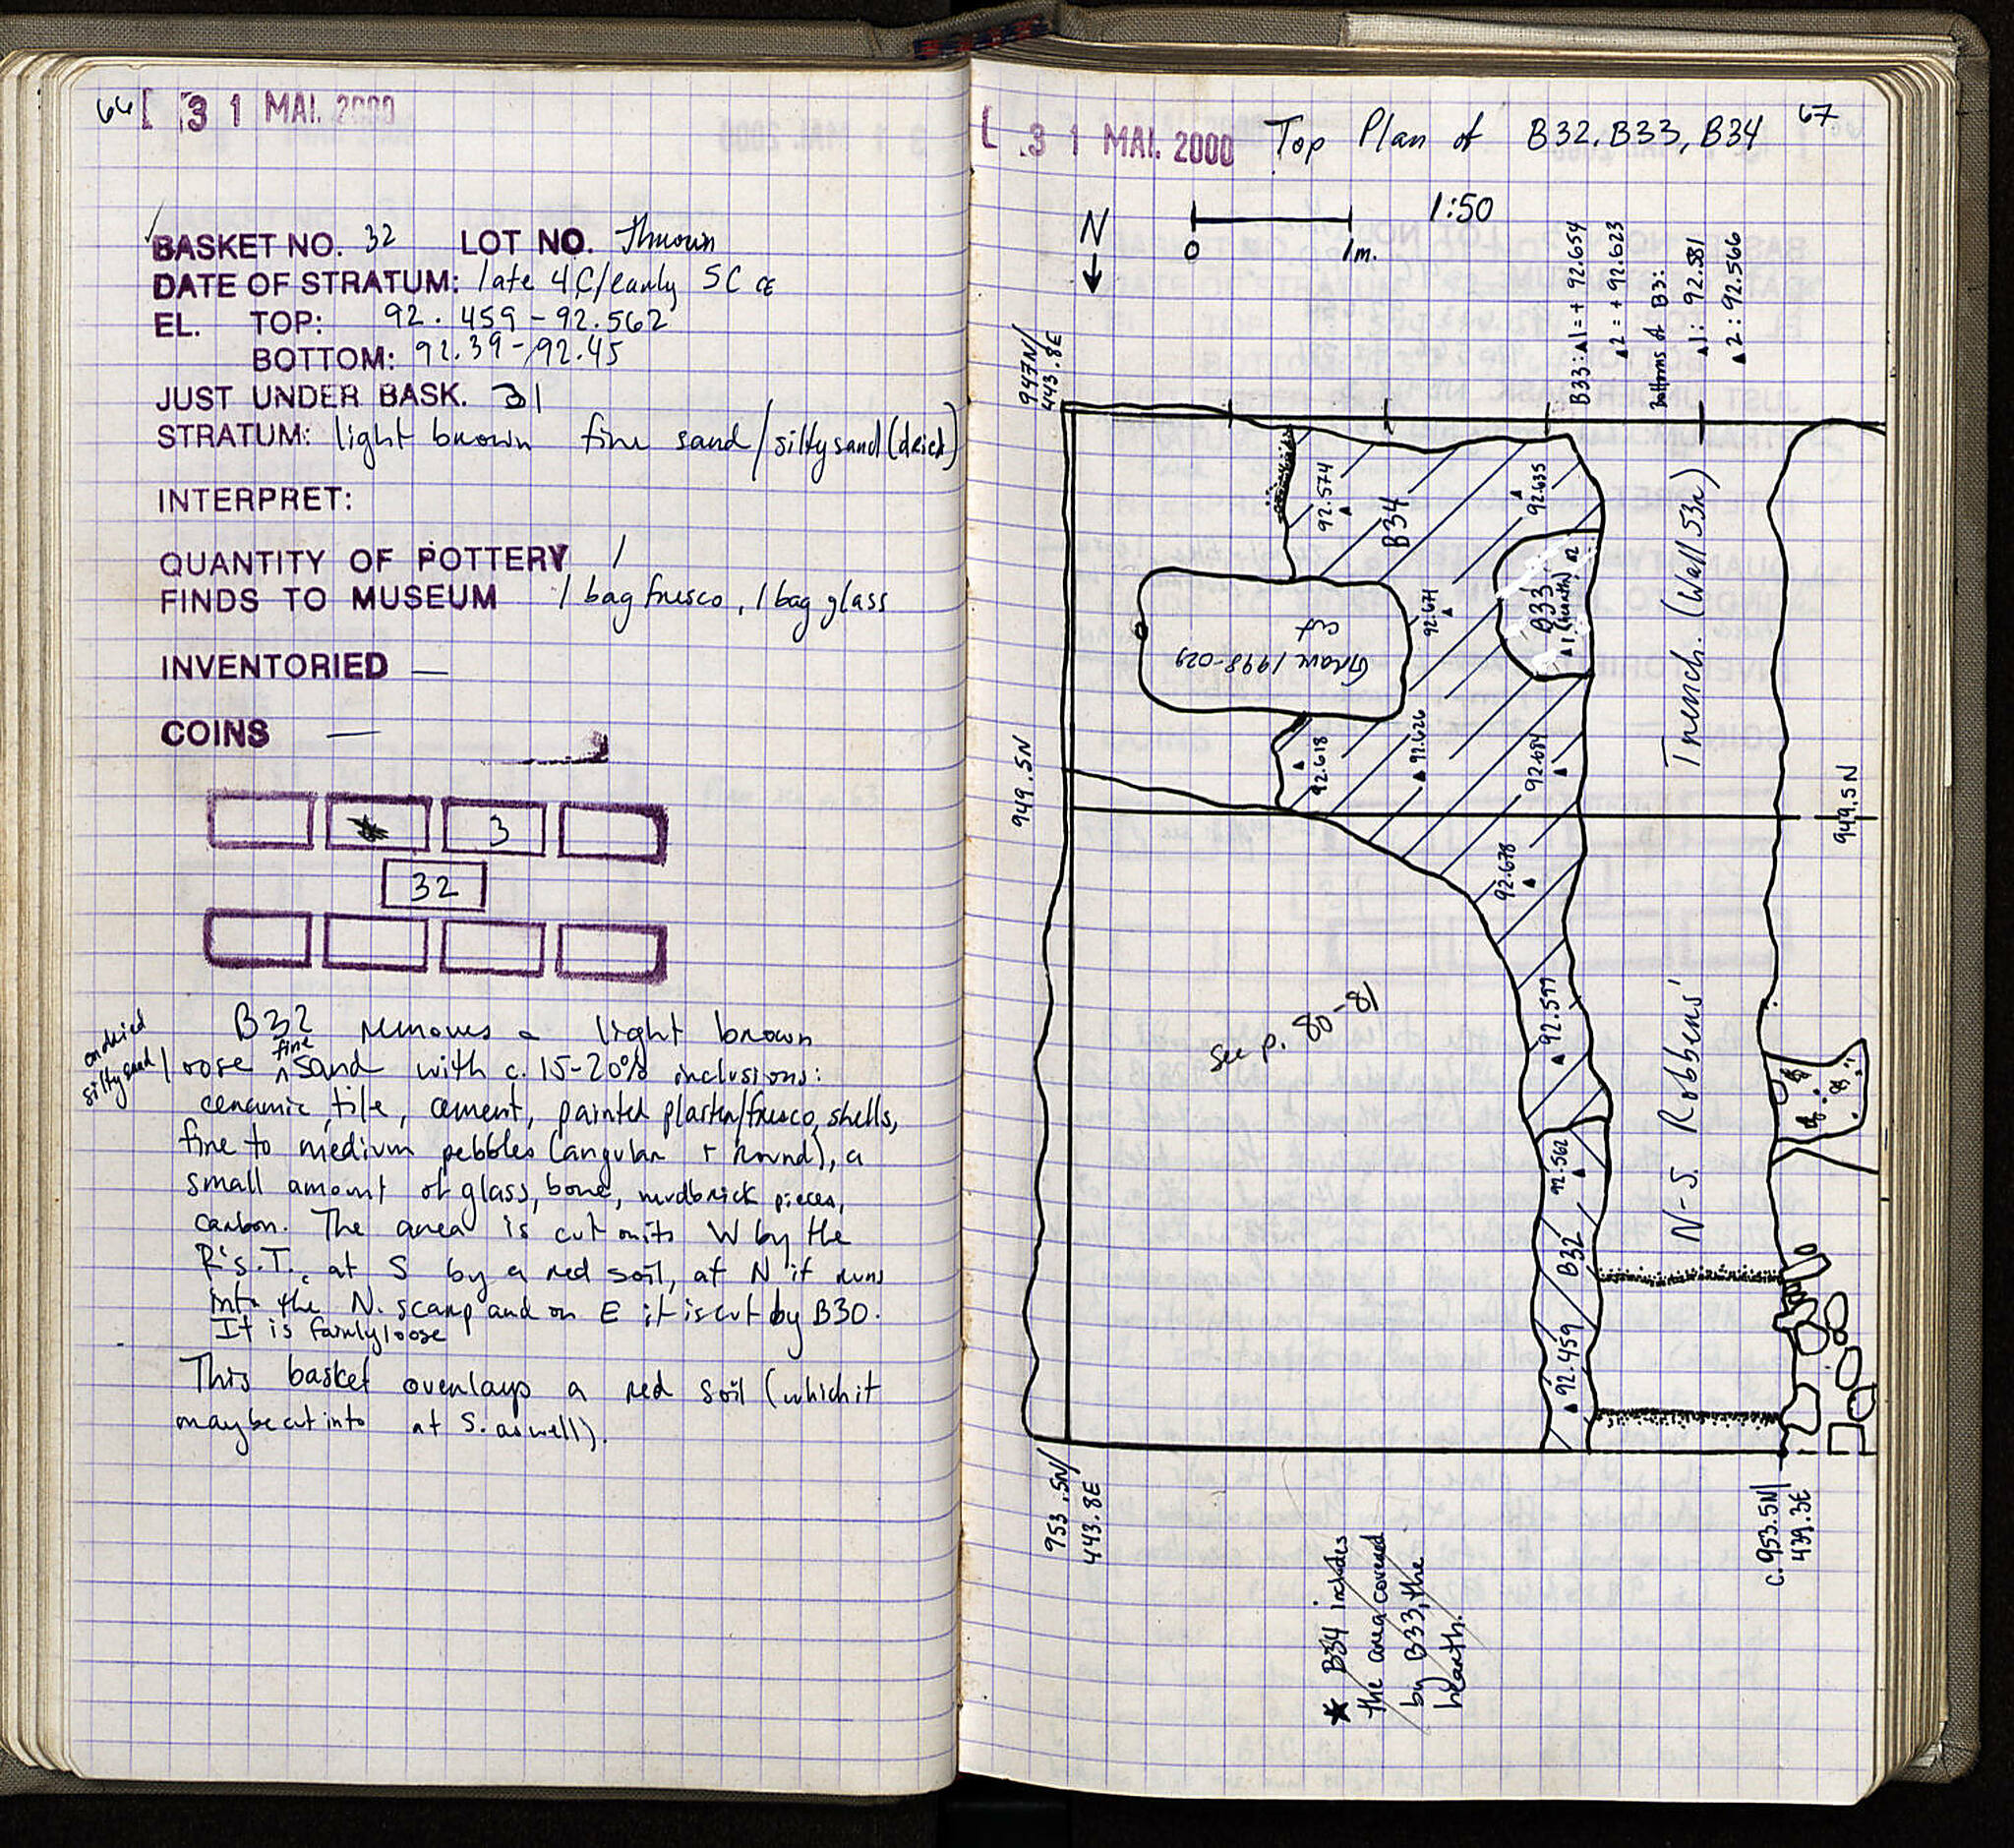 66 [ 31 MAI. 2000
BASKET NO. 32 LOT NO. Thrown
DATE OF STRATUM: late 4C/early 5C CE
EL. TOP: 92.459-92.562
BOTTOM: 92.39-92.45
JUST UNDER BASK. 31
STRATUM: light brown fine sand/silty sand (dried)
INTERPRET:
QUANTITY OF POTTERY 1
FINDS TO MUSEUM 1 bag fresco, 1 bag glass
INVENTORIED —
COINS —
3
32
B32 removes a light brown
or dried
silty sand/
loose fine sand with c. 15-20% inclusions:
ceramic, tile, cement, painted plaster/fresco, shells,
fine to medium pebbles (angular + round), a
small amount of glass, bone, mudbrick pieces,
carbon. The area is cut on its W by the
R's.T., at S by a red soil, at N it runs
into the N. scarp and on E it is cut by B30.
It is fairly loose
This basket overlays a red soil (which it
may be cut into at S. as well).
67
[ 31 MAI. 2000 Top Plan of B32, B33, B34
N
0 1m.
1:50
B33: ▲1 = + 92.654
▲2 = + 92.623
Bottoms of B3::
▲1: 92.581
▲2: 92.566
947N/
443.8E
92.574
B34
92.635
B33
(hearth)
▲1
▲2
92.671
Grave 1998-029
cut
92.618
92.626
92.684
949.5N
949.5N
92.678
Trench. (Wall 53n)
N-S. Robbers'
see p. 80-81
92.577
92.562
B32
92.459
953.5N/
443.8E
c. 953.5N/
439.3E
★ B34 includes
the area covered
by B33, the
hearth.